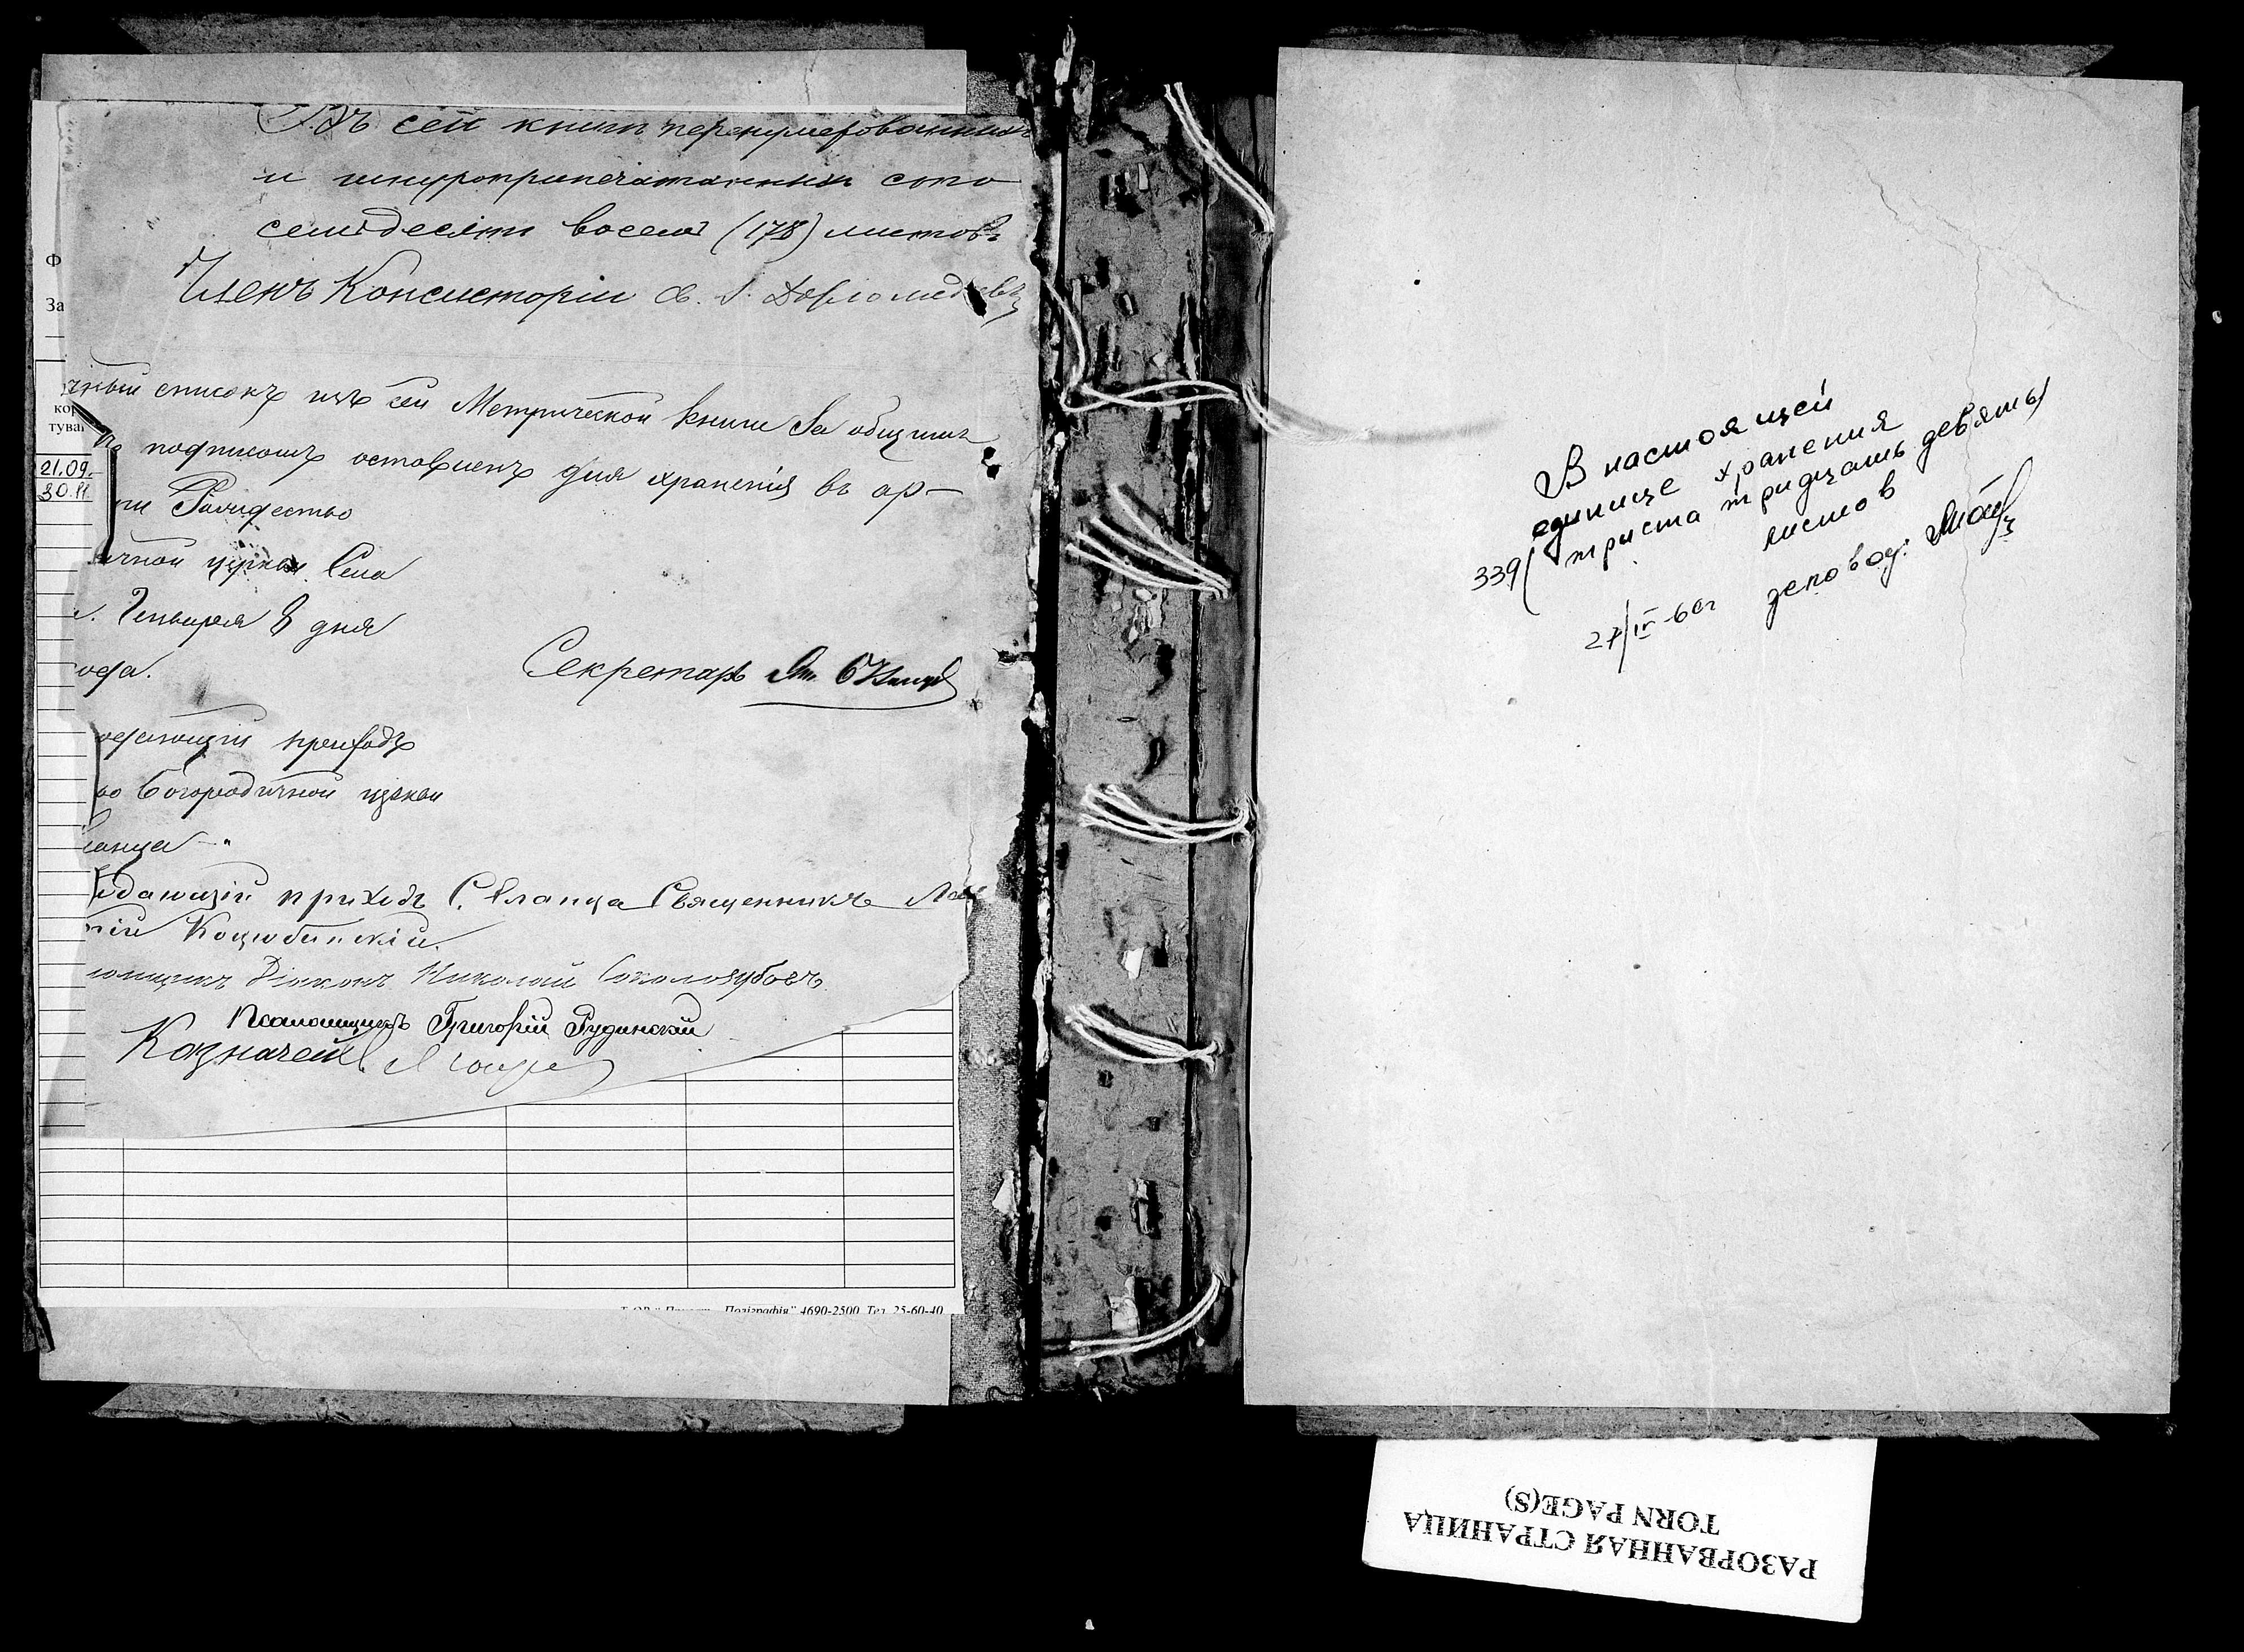 Въ сей книги перенумерованныхъ
и шнуроприпечатанныхъ сто
семьдесятъ восемь (178) листовъ
Членъ Консисторіи св. І.
Ф
За
чный списокъ изъ сей Метрической книги За общимъ
подписомъ оставленъ для храненія въ ар-
кор
тува
21.09.
30.11
ли Рождество
ичной церкви Села
Генваря 8 дня
ода.
Секретарь
одающій приходъ
во Богородичной церкви
ланца
юдающій приходъ С. Еланца Священникъ
тій Коцюбинскій.
ломщикъ Діаконъ Николай Соколозубовъ
Псаломщикъ Григорій Рудинскій
Казначей
Поліграфія" 4690-2500 Тел. 25-60-40
В настоящей
единице хранения
339( триста тридцать девять)
листов
27/IV-60г деловод:
РАЗОРВАННАЯ СТРАНИЦА
TORN PAGE(S)